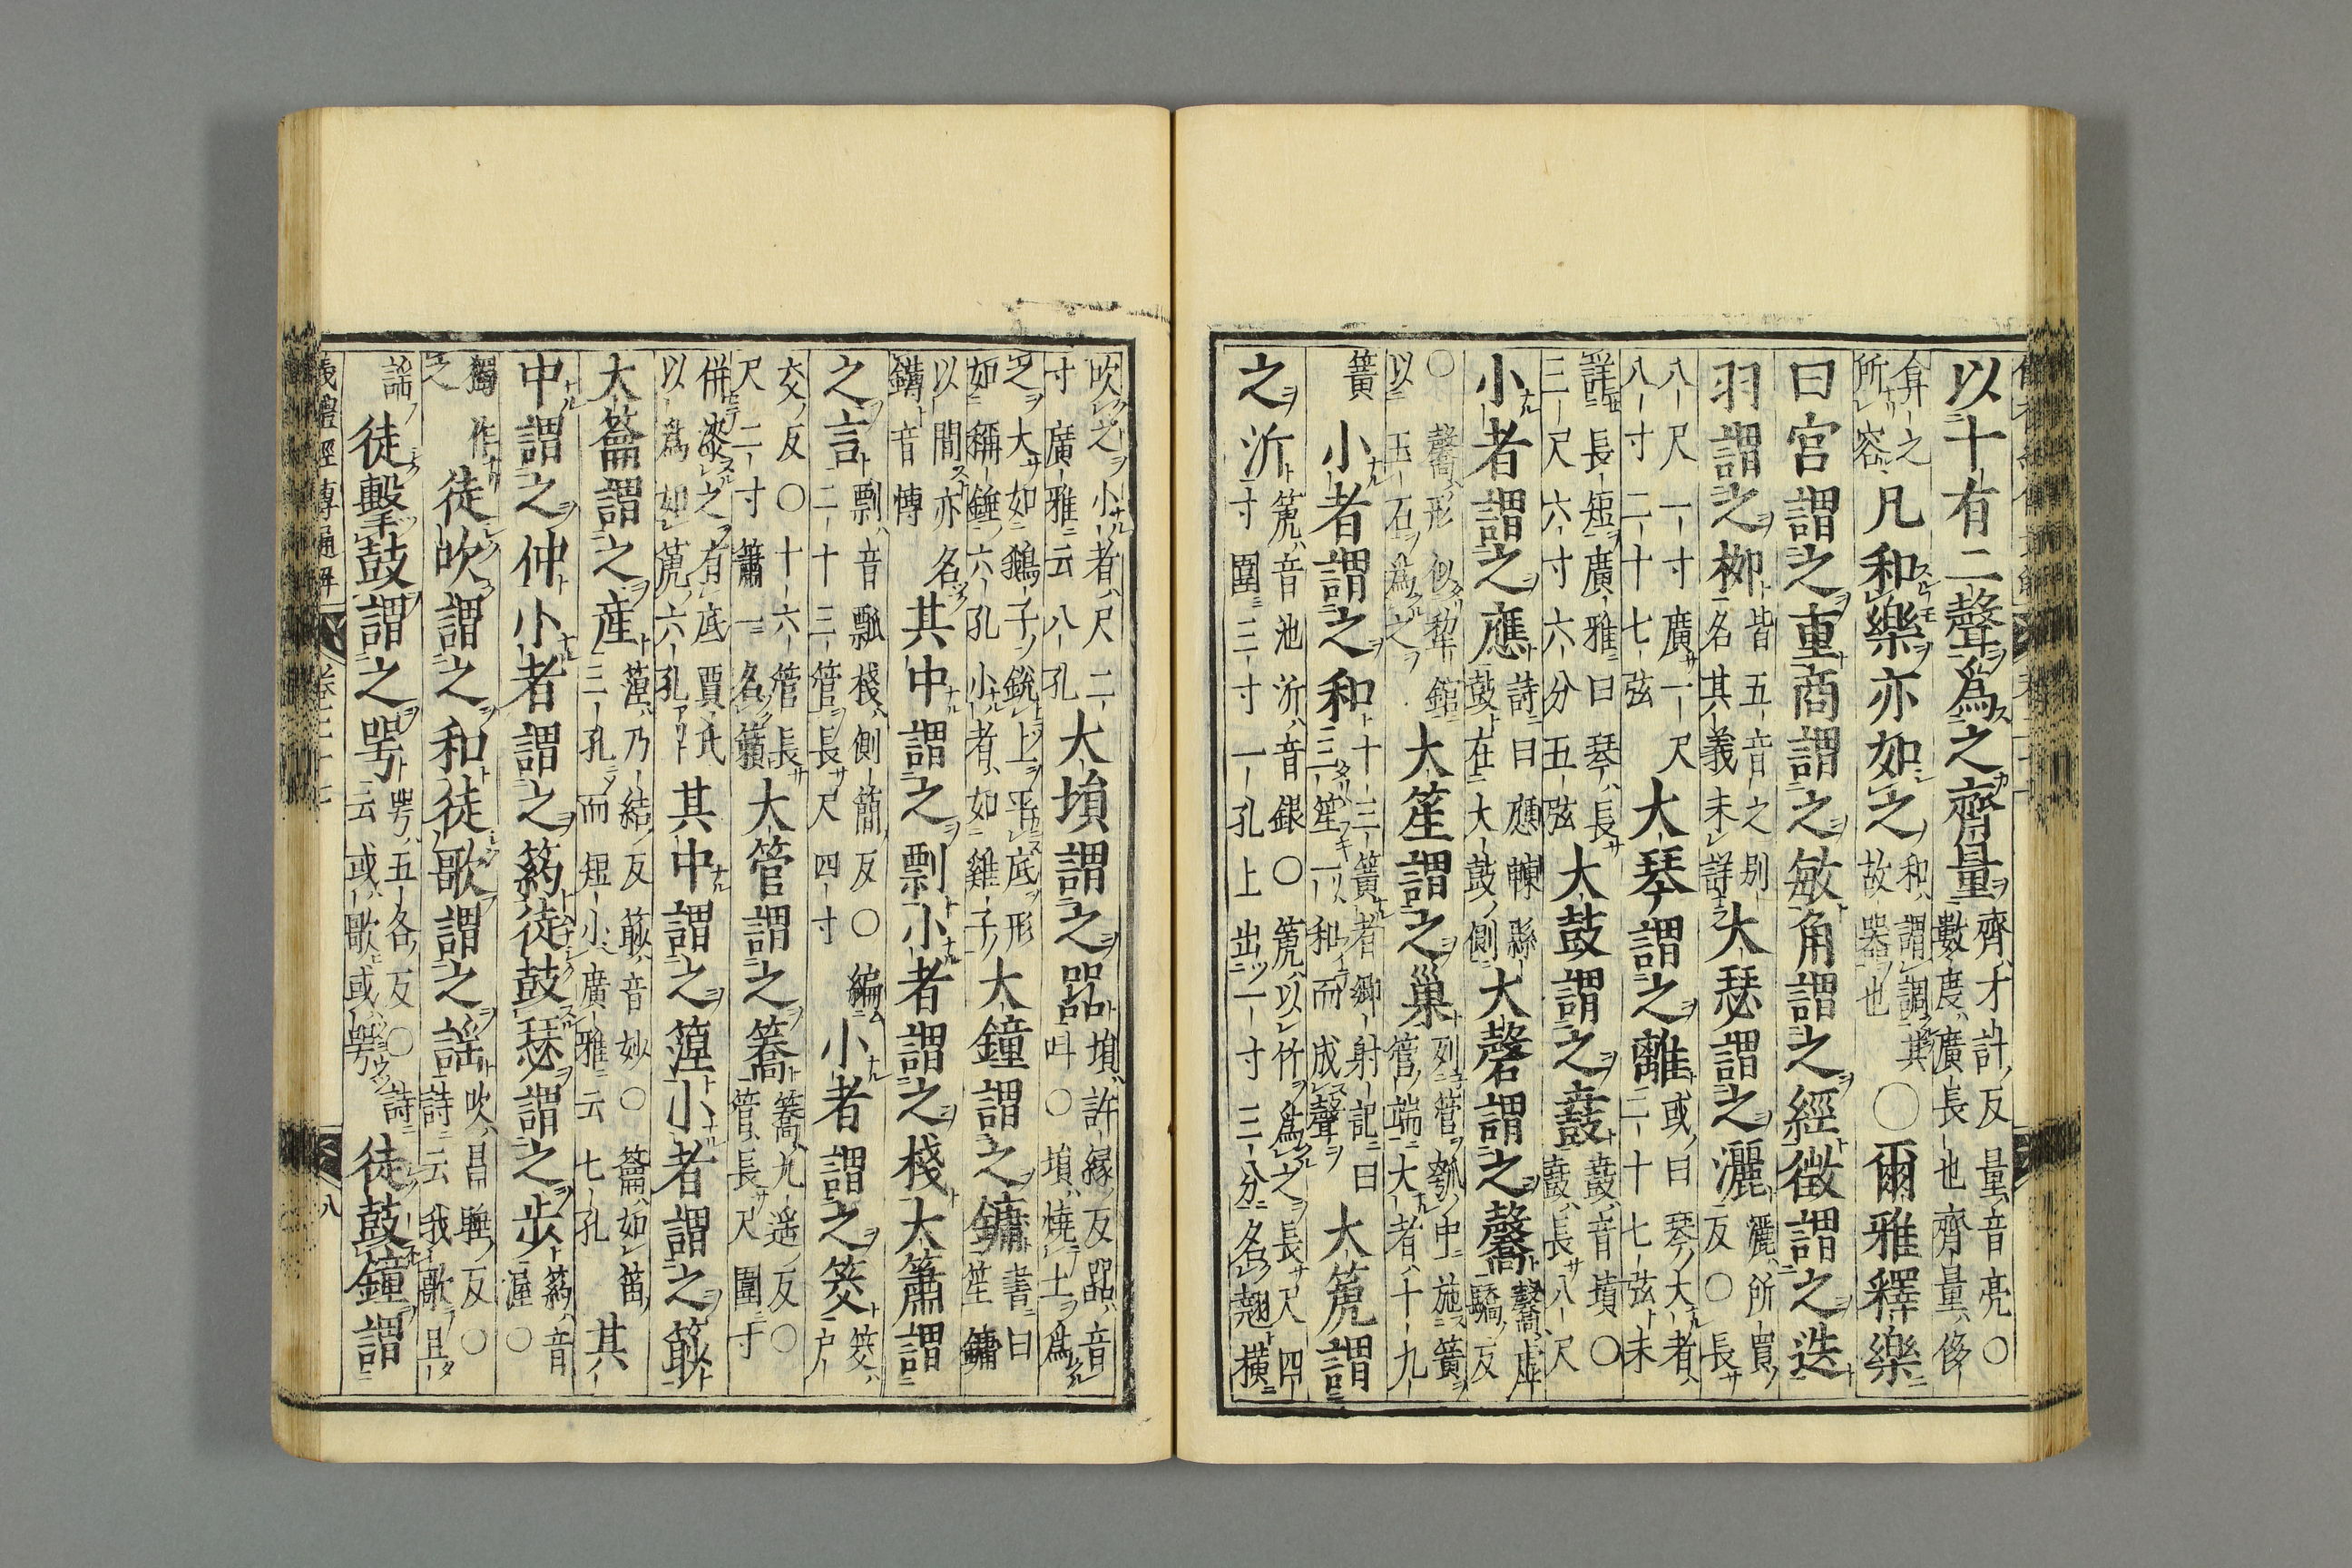 以十有二聲爲之齊量齊才計反量音亮○數度廣長也齊量侈
弇之所容凡和樂亦如之和謂調其故器也○爾雅釋樂
曰宮謂之重商謂之敏角謂之經徵謂之迭
羽謂之栁皆五音之別名其義未詳大瑟謂之灑灑所買反○長
八尺一寸廣一尺八寸二十七弦大琴謂之離或曰琴大者二十七弦未
詳長短廣雅曰琴長三尺六寸六分五弦大鼓謂之鼖鼖音墳○鼖長八尺
小者謂之應詩曰應朄縣鼓在大鼓側大磬謂之毊毊虛驕反
○毊形似犂錧以玉石爲之大笙謂之巢列管匏中施簧管端大者十九
簧小者謂之和十三簧者鄉射記曰三笙一和而成聲大篪謂
之沂篪音池沂音銀○篪以竹爲之長尺四寸圍三寸一孔上出一寸三分名翹橫
吹之小者尺二寸廣雅云八孔大塤謂之嘂塤許緣反嘂音叫○塤燒土爲
之大如鵝子銳上平底形如稱錘六孔小者如雞子大鐘謂之鏞書曰笙鏞
以間亦名鏄音博其中謂之剽小者謂之棧大簫謂
之言剽音瓢棧側簡反○編二十三管長尺四寸小者謂之筊筊戶
交反○十六管長尺二寸簫一名籟大管謂之簥簥九遙反○管長尺圍寸
併漆之有底賈氏以爲如篪六孔其中謂之篞小者謂之篎
大籥謂之產篞乃結反篎音妙○籥如笛三孔而短小廣雅云七孔其
中謂之仲小者謂之箹徒鼓瑟謂之步箹音渥○
獨作之徒吹謂之和徒歌謂之謠吹昌睡反○詩云我歌且
謠徒擊鼓謂之咢咢五各反○詩云或歌或咢徒鼓鐘謂
儀禮經傳通解
卷二十七
八